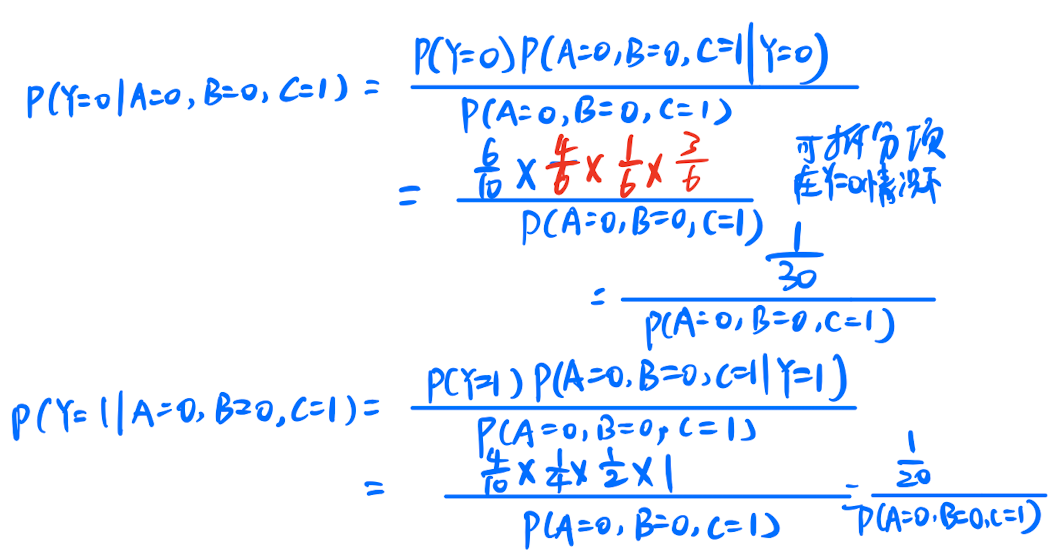 P(Y=0|A=0, B=0, C=1) = \frac{P(Y=0)P(A=0,B=0,C=1|Y=0)}{P(A=0,B=0,C=1)}
= \frac{\frac{6}{10} × \frac{4}{6} × \frac{1}{6} × \frac{3}{6}}{P(A=0,B=0,C=1)}
可拆分项
在Y=0情况下
= \frac{\frac{1}{30}}{P(A=0,B=0,C=1)}
P(Y=1|A=0,B=0,C=1) = \frac{P(Y=1)P(A=0,B=0,C=1|Y=1)}{P(A=0,B=0,C=1)}
= \frac{\frac{4}{10} × \frac{1}{4} × \frac{1}{2} × 1}{P(A=0,B=0,C=1)} = \frac{\frac{1}{20}}{P(A=0,B=0,C=1)}